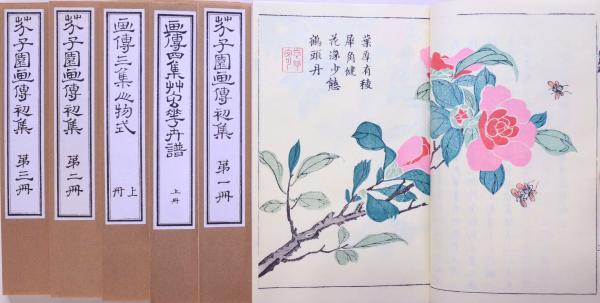 芥子園画傳初集 第一冊
画傳四集艸虫花卉譜 上冊
画傳三集物式 上冊
芥子園画傳初集 第二冊
芥子園画傳初集 第三冊
葉厚有稜
犀角健
花深少態
鶴頭丹